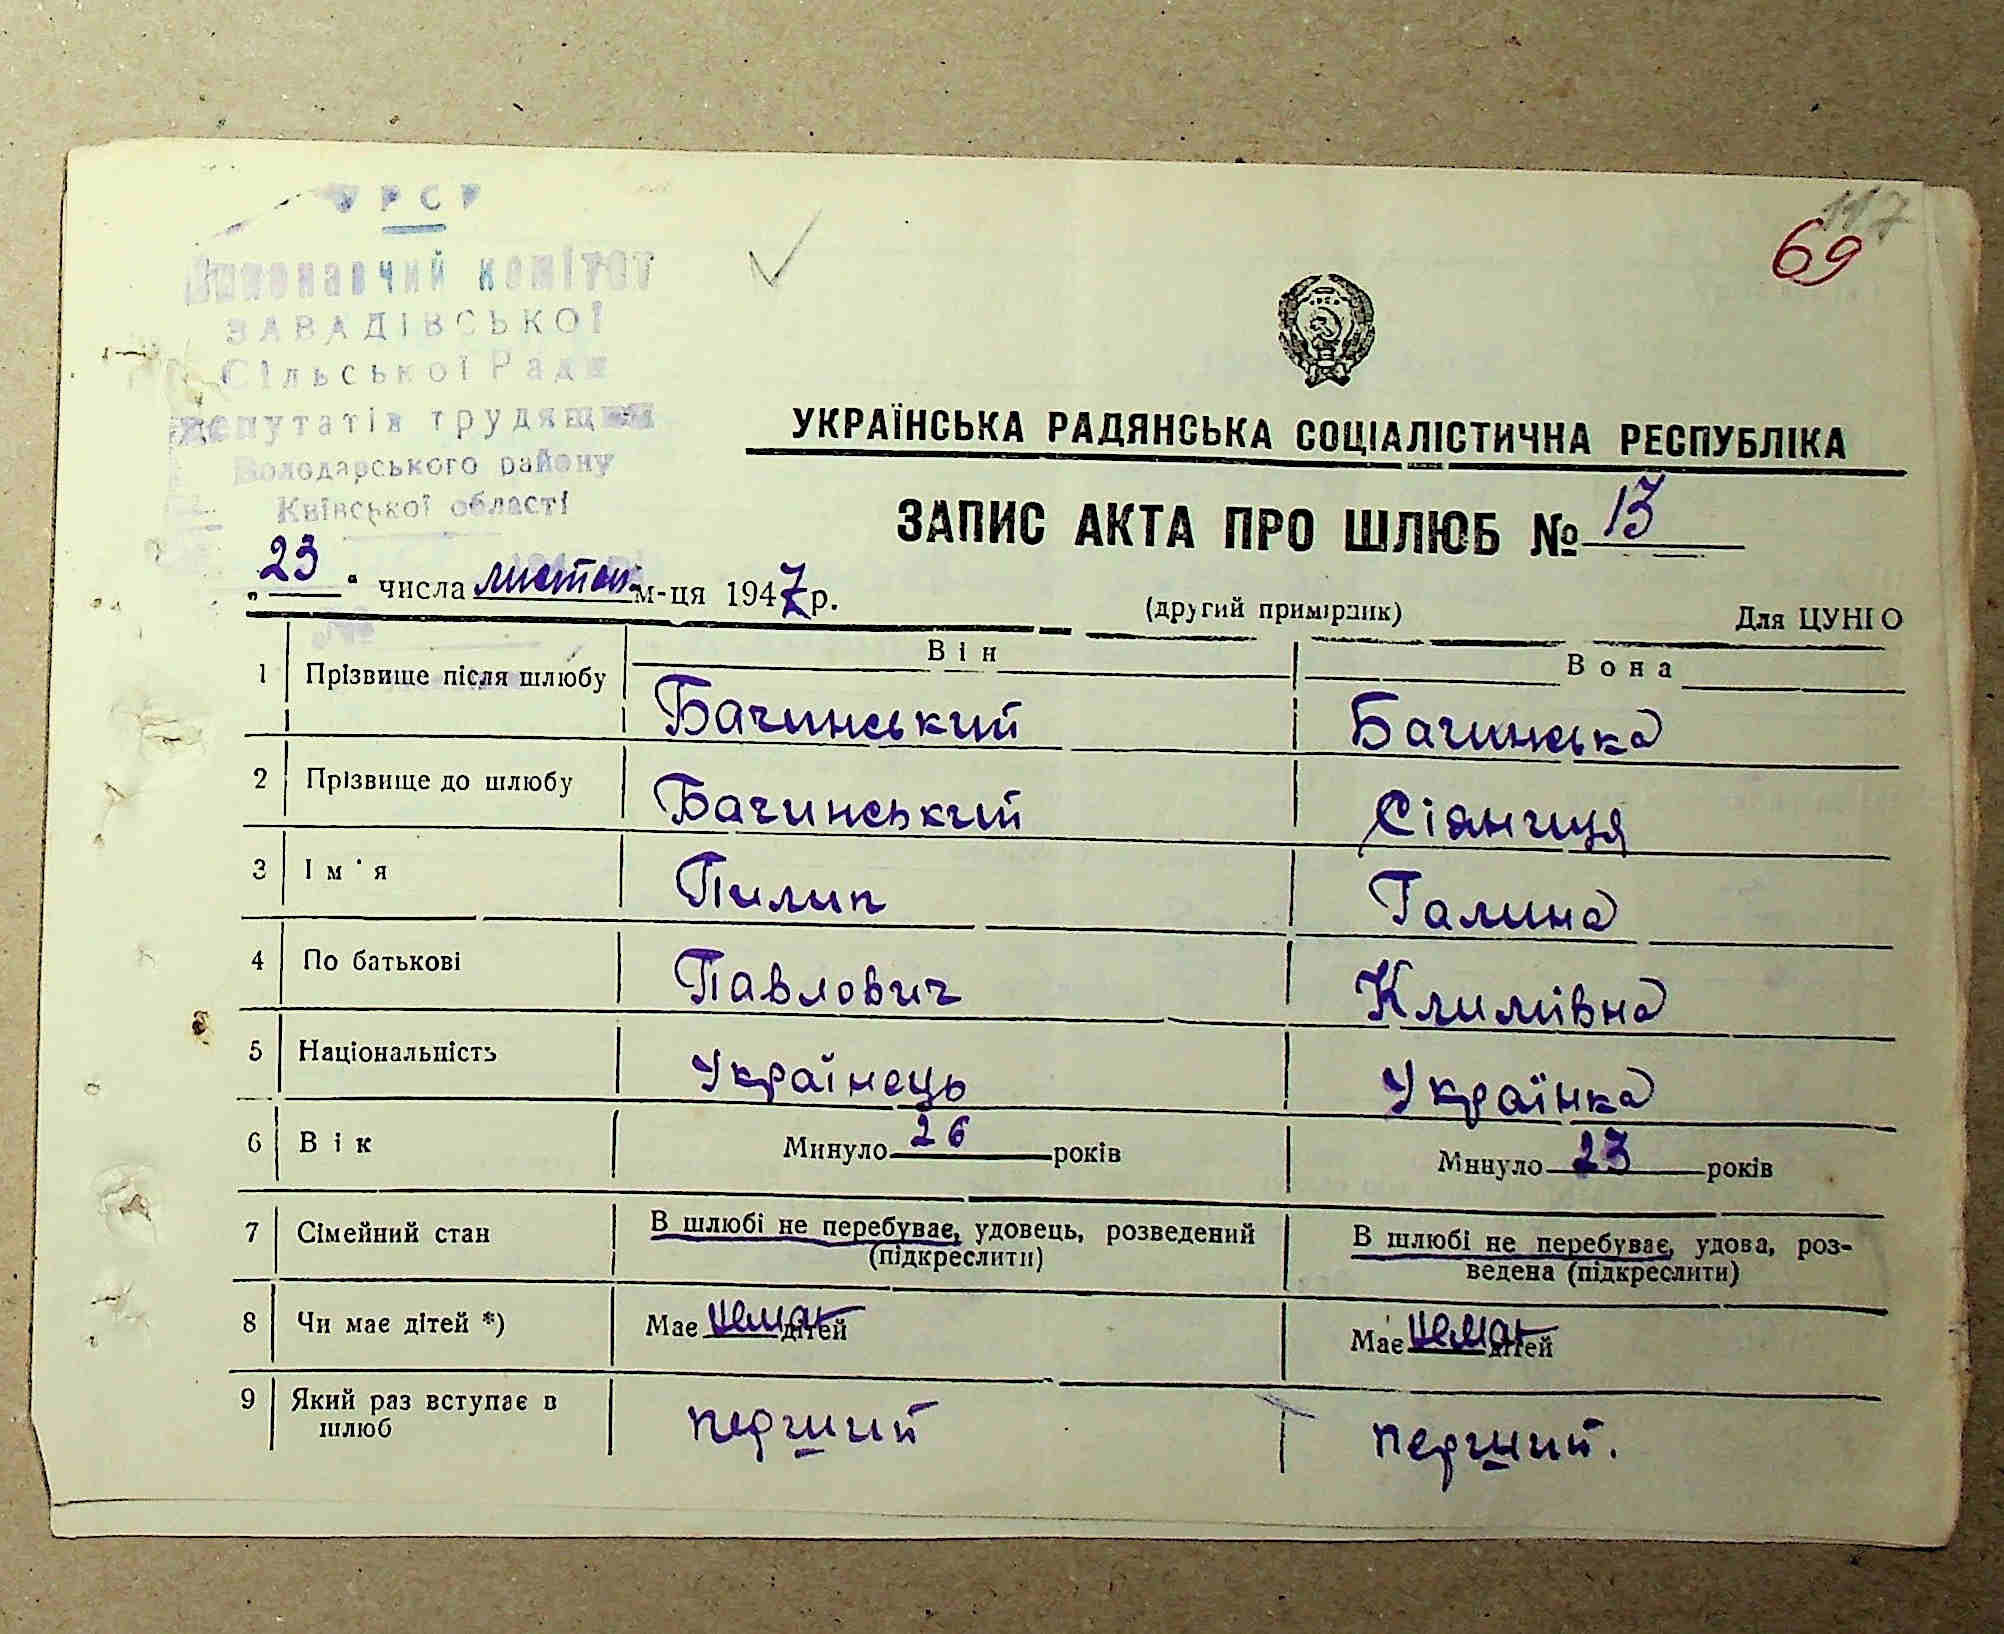 УРСР
Виконавчий комітет
ЗАВАДІВСЬКОЇ
Сільської Ради
депутатів трудящих
Володарського району
Київської області
117
69
УКРАЇНСЬКА РАДЯНСЬКА СОЦІАЛІСТИЧНА РЕСПУБЛІКА
ЗАПИС АКТА ПРО ШЛЮБ № 13
„ 23 " числа листоп. м-ця 1947 р.
(другий примірник) Для ЦУНГО
Він Вона
1 Прізвище після шлюбу Бачинський Бачинська
2 Прізвище до шлюбу Бачинський Сіяниця
3 Ім'я Пилип Галина
4 По батькові Павлович Климівна
5 Національність Українець Українка
6 Вік Минуло 26 років Минуло 23 років
7 Сімейний стан В шлюбі не перебуває, удовець, розведений (підкреслити) В шлюбі не перебуває, удова, роз-
ведена (підкреслити)
8 Чи має дітей *) Має немає дітей Має немає дітей
9 Який раз вступає в шлюб перший перший.